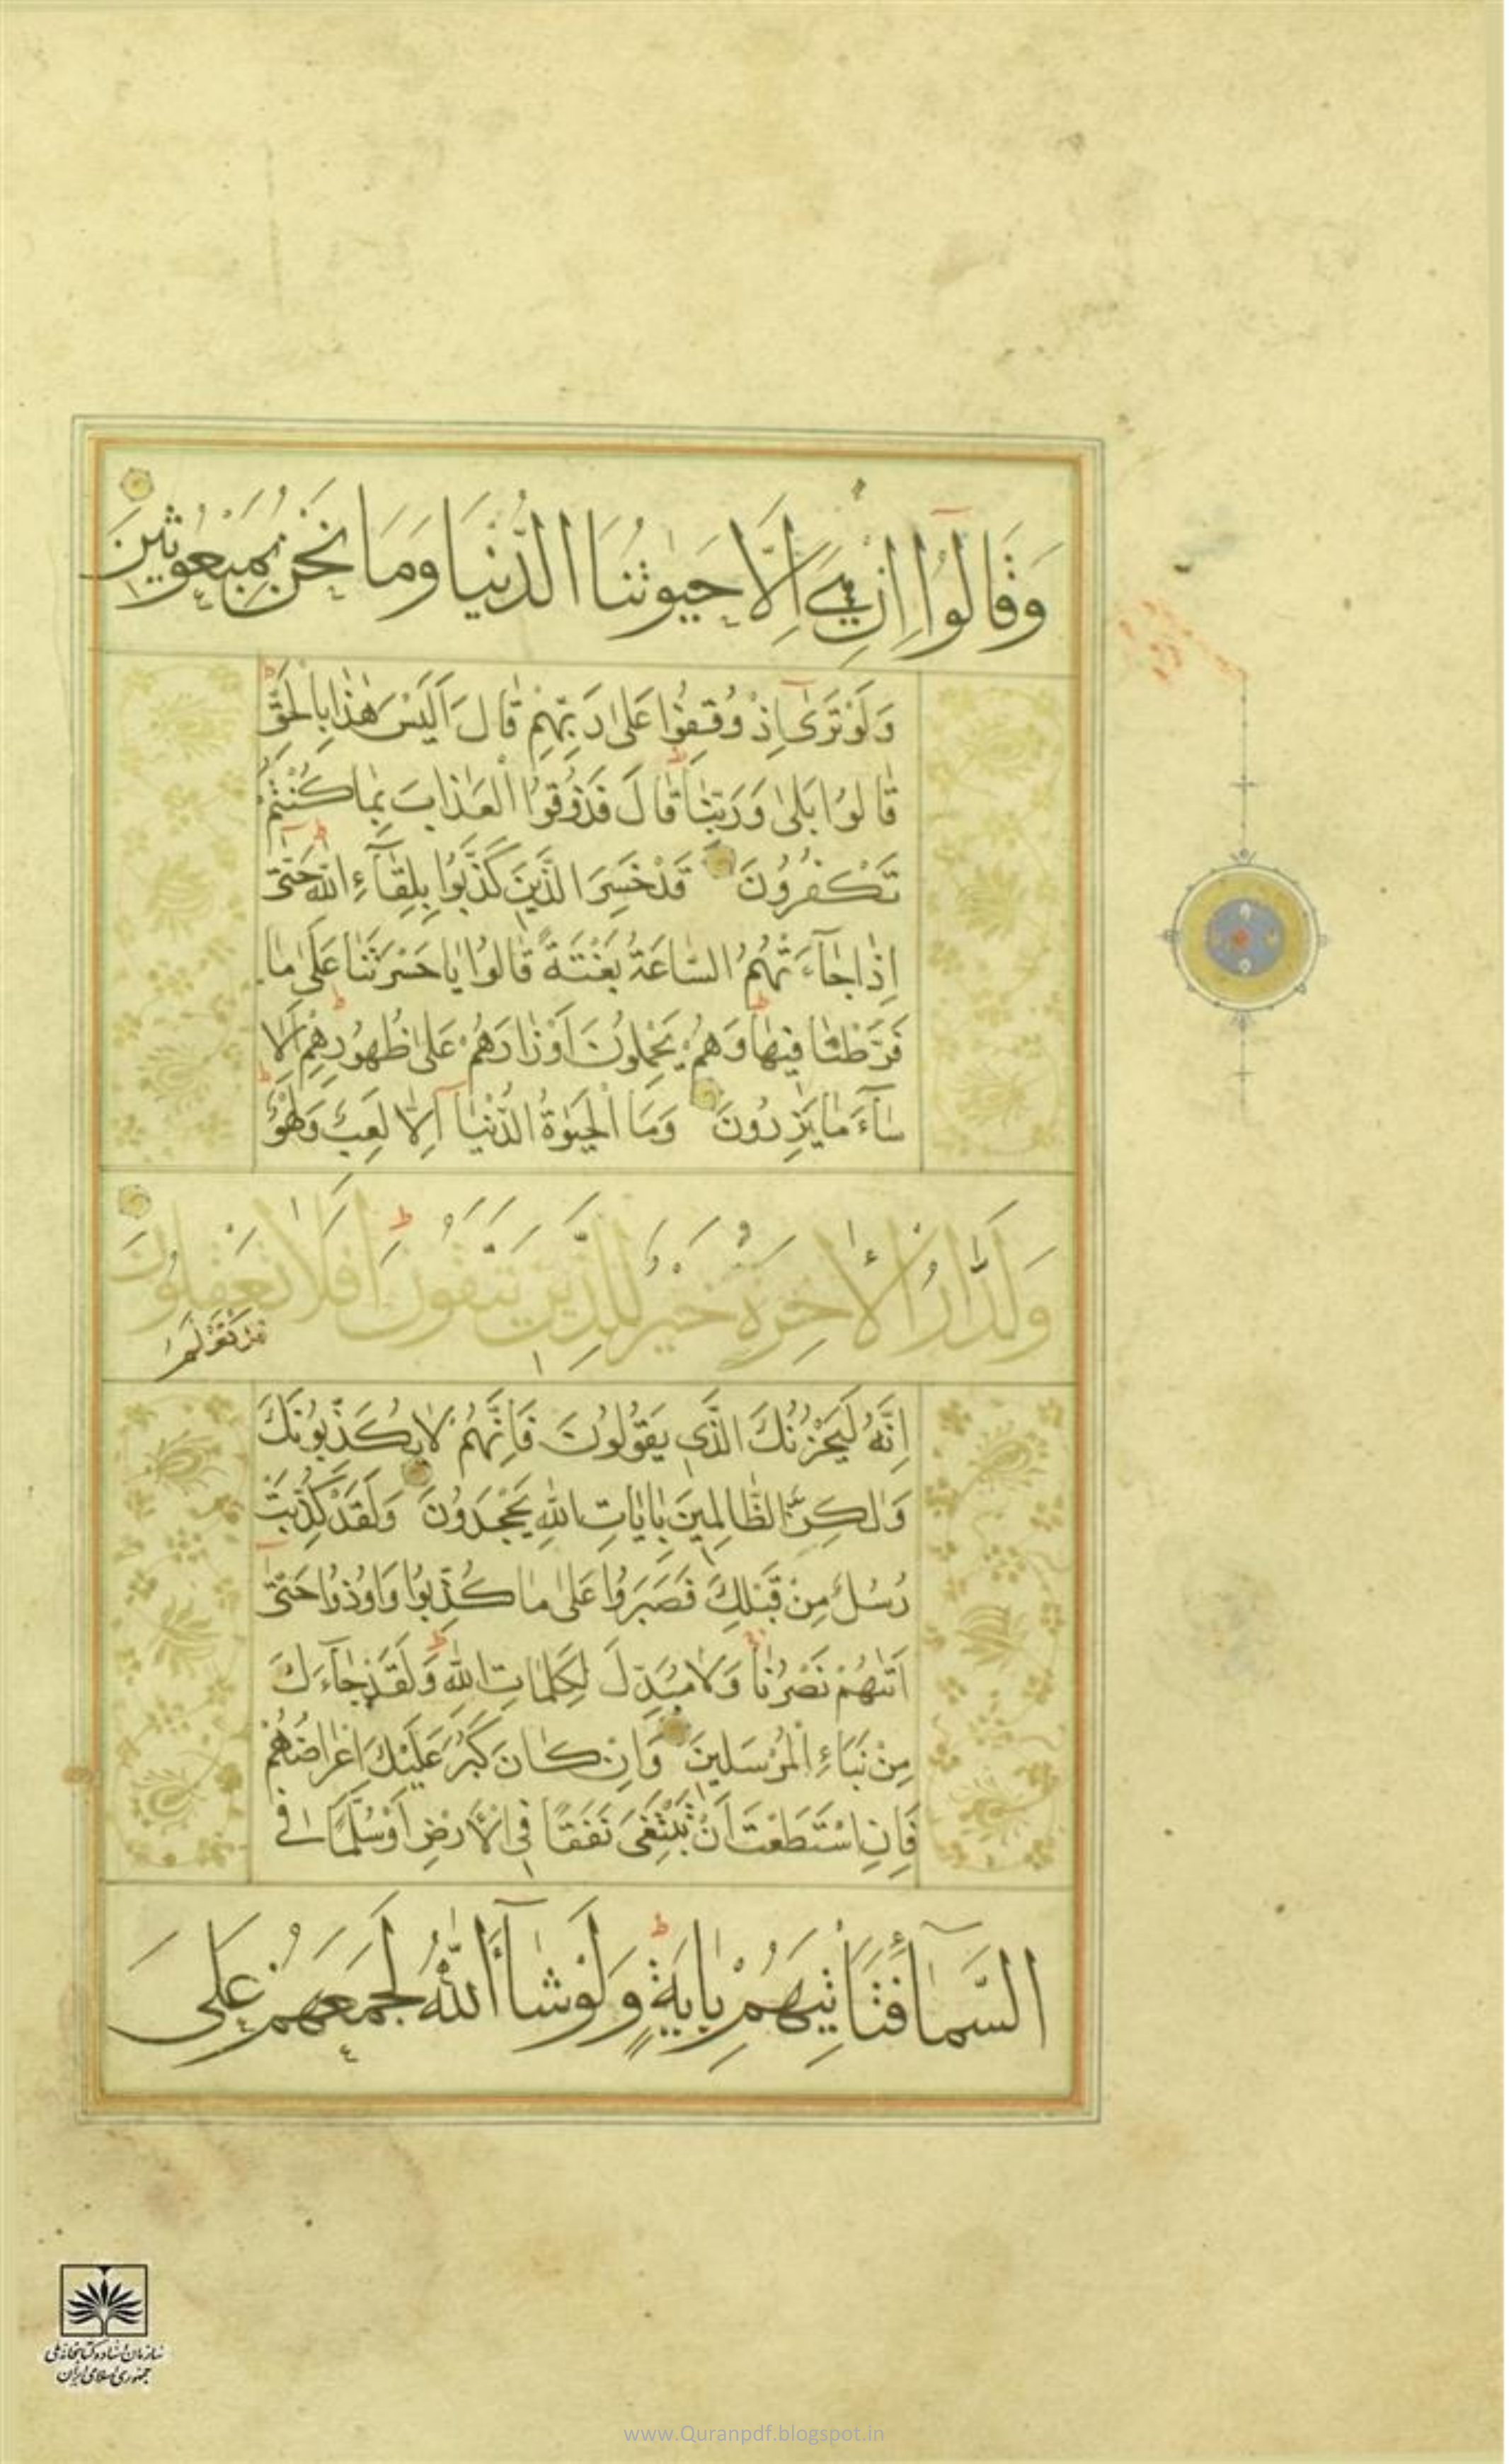 وَقَالُوٓا اِنْ هِيَ اِلَّا حَيٰوتُنَا الدُّنْيَا وَمَا نَحْنُ بِمَبْعُوثِينَ
وَلَوْ تَرٰىٓ اِذْ وُقِفُوا عَلٰى رَبِّهِمْ قَالَ اَلَيْسَ هٰذَا بِالْحَقِّ
قَالُوا بَلٰى وَرَبِّنَا قَالَ فَذُوقُوا الْعَذَابَ بِمَا كُنْتُمْ
تَكْفُرُونَ قَدْ خَسِرَ الَّذِينَ كَذَّبُوا بِلِقَآءِ اللّٰهِ حَتّٰىٓ
اِذَا جَآءَتْهُمُ السَّاعَةُ بَغْتَةً قَالُوا يَا حَسْرَتَنَا عَلٰى مَا
فَرَّطْنَا فِيهَا وَهُمْ يَحْمِلُونَ اَوْزَارَهُمْ عَلٰى ظُهُورِهِمْ اَلَا
سَآءَ مَا يَزِرُونَ وَمَا الْحَيٰوةُ الدُّنْيَآ اِلَّا لَعِبٌ وَلَهْوٌ
وَلَلدَّارُ الْاٰخِرَةُ خَيْرٌ لِلَّذِينَ يَتَّقُونَ اَفَلَا تَعْقِلُونَ
قَدْ نَعْلَمُ
اِنَّهُ لَيَحْزُنُكَ الَّذِي يَقُولُونَ فَاِنَّهُمْ لَا يُكَذِّبُونَكَ
وَلٰكِنَّ الظَّالِمِينَ بِاٰيَاتِ اللّٰهِ يَجْحَدُونَ وَلَقَدْ كُذِّبَتْ
رُسُلٌ مِنْ قَبْلِكَ فَصَبَرُوا عَلٰى مَا كُذِّبُوا وَاُوذُوا حَتّٰىٓ
اَتٰىهُمْ نَصْرُنَا وَلَا مُبَدِّلَ لِكَلِمَاتِ اللّٰهِ وَلَقَدْ جَآءَكَ
مِنْ نَبَاءِ الْمُرْسَلِينَ وَاِنْ كَانَ كَبُرَ عَلَيْكَ اِعْرَاضُهُمْ
فَاِنِ اسْتَطَعْتَ اَنْ تَبْتَغِيَ نَفَقًا فِي الْاَرْضِ اَوْ سُلَّمًا فِي
السَّمَآءِ فَتَأْتِيَهُمْ بِاٰيَةٍ وَلَوْ شَآءَ اللّٰهُ لَجَمَعَهُمْ عَلَى
سازمان اسناد و کتابخانه ملی
جمهوری اسلامی ایران
www.Quranpdf.blogspot.in